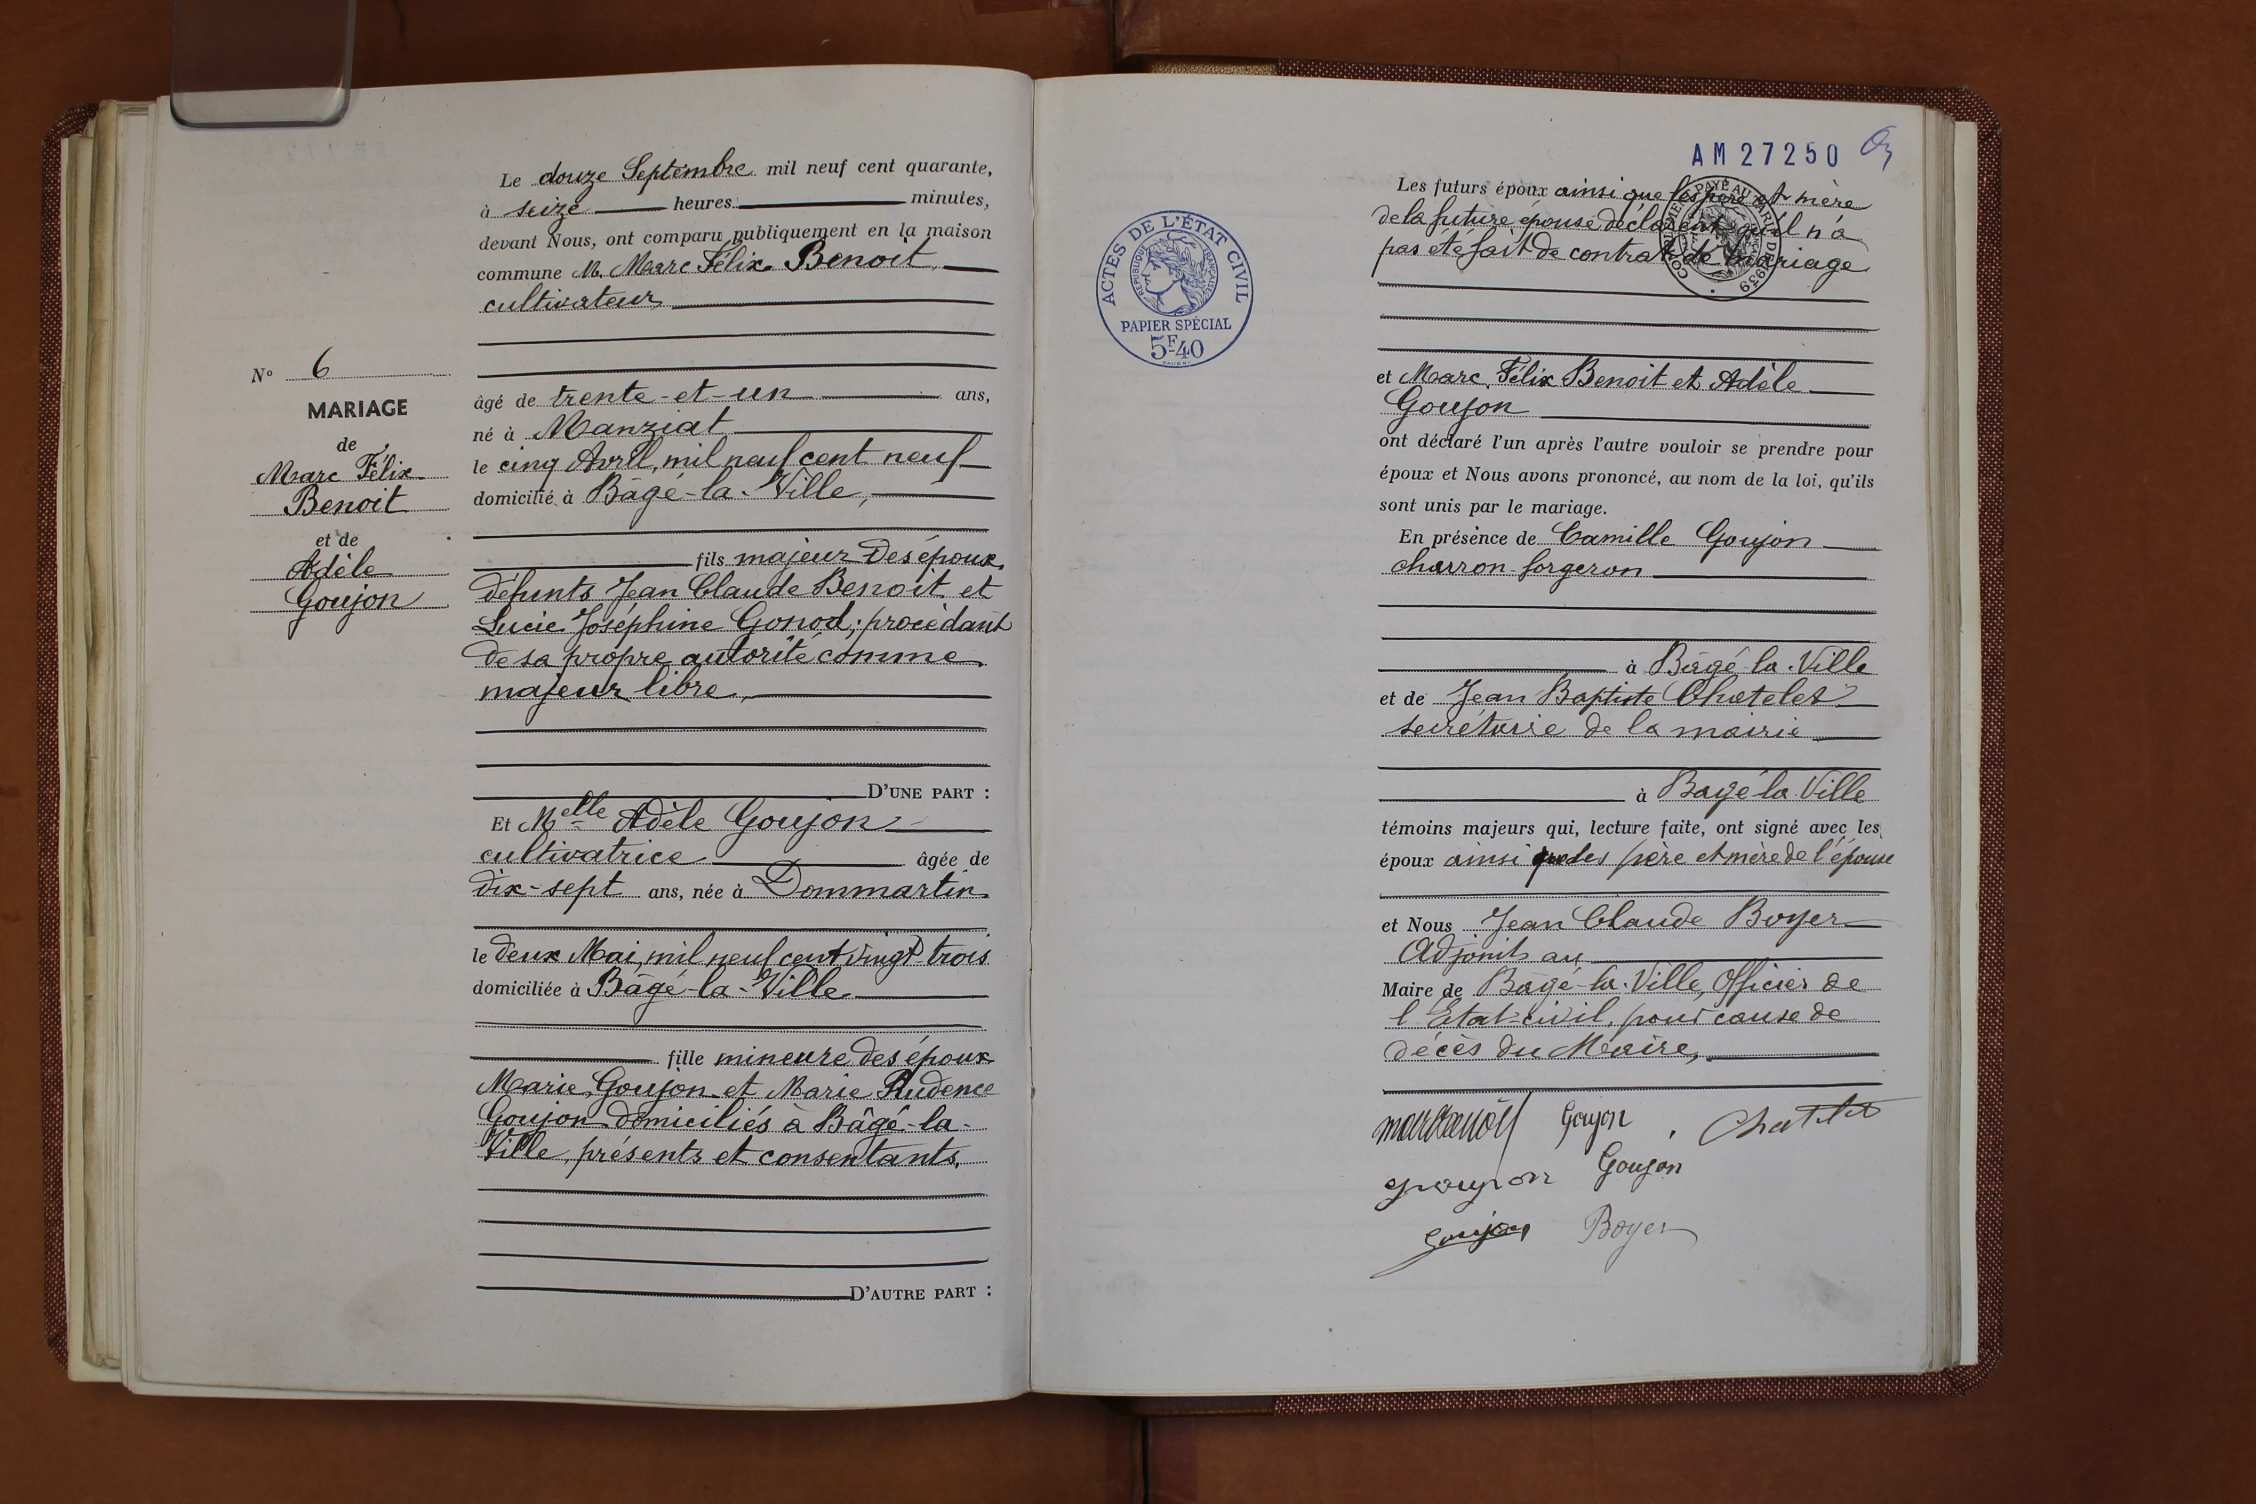 Le douze Septembre mil neuf cent quarante,
à seize heures minutes,
devant Nous, ont comparu publiquement en la maison
commune M. Marc Félix Benoit,
cultivateur
N° 6
MARIAGE
de
Marc Félix
Benoit
et de
Adèle
Goujon
âgé de trente-et-un ans,
né à Manziat
le cinq Avril, mil neuf cent neuf
domicilié à Bâgé-la-Ville,
fils majeur des époux
défunts Jean Claude Benoit et
Lucie Joséphine Gonod; procédant
de sa propre autorité comme
majeur libre,
D'UNE PART :
Et Melle Adèle Goujon
cultivatrice âgée de
dix-sept ans, née à Dommartin
le deux Mai, mil neuf cent vingt-trois
domiciliée à Bâgé-la-Ville
fille mineure des époux
Marie Goujon et Marie Prudence
Goujon domiciliés à Bâgé-la-
Ville, présents et consentants.
D'AUTRE PART :
AM 27250
ACTES DE L'ÉTAT CIVIL
RÉPUBLIQUE FRANÇAISE
PAPIER SPÉCIAL
5F40
COMPLÉMENT PAYÉ AU TARIF DE 1939
Les futurs époux ainsi que les père et mère
de la future épouse déclarent qu'il n'a
pas été fait de contrat de mariage
et Marc Félix Benoit et Adèle
Goujon
ont déclaré l'un après l'autre vouloir se prendre pour
époux et Nous avons prononcé, au nom de la loi, qu'ils
sont unis par le mariage.
En présence de Camille Goujon
charron-forgeron
à Bâgé-la-Ville
et de Jean Baptiste Chatelet
secrétaire de la mairie
à Bagé la Ville
témoins majeurs qui, lecture faite, ont signé avec les
époux ainsi que les père et mère de l'épouse
et Nous Jean Claude Boyer
Adjoint au
Maire de Bâgé-la-Ville, Officier de
l'Etat-civil, pour cause de
décès du Maire,
Goujon Chatelet
goujon Goujon
Goujon Boyer